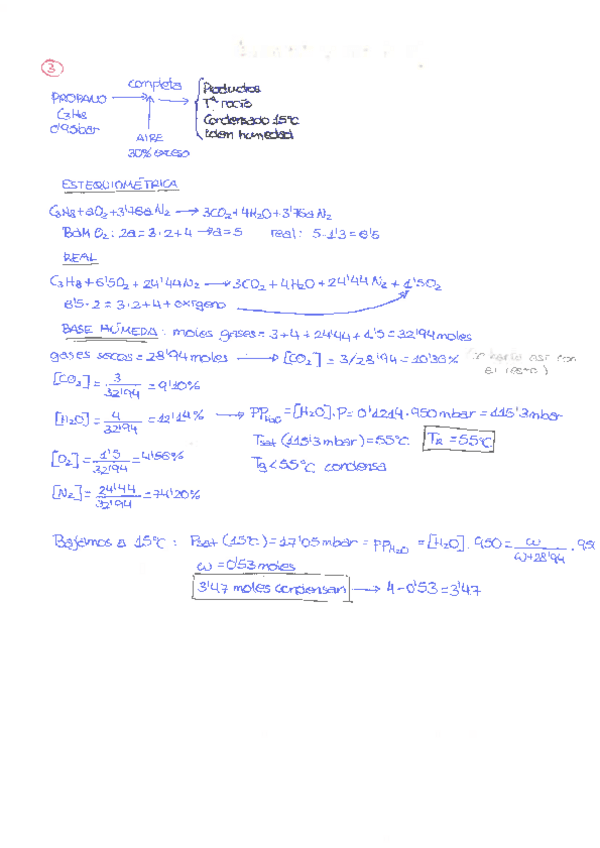 3
PROPANO completa Productos
C3H8 Tª rocío
0'95bar Condensado 15ºC
AIRE Idem humedad
30% exceso
ESTEQUIOMÉTRICA
C3H8 + aO2 + 3'76a N2 → 3CO2 + 4H2O + 3'76a N2
BdM O2: 2a = 3·2+4 → a=5 real: 5·1'3 = 6'5
REAL
C3H8 + 6'5O2 + 24'44N2 → 3CO2 + 4H2O + 24'44 N2 + 1'5O2
6'5·2 = 3·2+4+oxígeno
BASE HÚMEDA: moles gases = 3+4+24'44+1'5 = 32'94 moles
gases secos = 28'94 moles → [CO2] = 3/28'94 = 10'36% (se haría así con el resto)
[CO2] = 3/32'94 = 9'10%
[H2O] = 4/32'94 = 12'14% → PPH2O = [H2O]·P = 0'1214·950 mbar = 115'3mbar
Tsat (115'3 mbar) = 55ºC TR = 55ºC
[O2] = 1'5/32'94 = 4'56% Tg < 55ºC condensa
[N2] = 24'44/32'94 = 74'20%
Bajamos a 15ºC: Psat (15ºC) = 17'05 mbar = PPH2O = [H2O]·950 = ω/ω+28'94
ω = 0'53 moles
3'47 moles condensan → 4-0'53 = 3'47